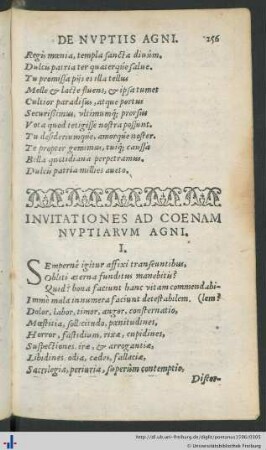 DE NVPTIIS AGNI. 256
Regis mœnia, templa sancta diuûm,
Dulcis patria ter quaterque salue.
Tu promissa pijs es illa tellus
Melle & lacte fluens, & ipsa tumet
Cultior paradisus, atque portus
Securissimus, vltimumq; prorsus
Vota quod tetigisse nostra possunt.
Tu desideriumque, amorque noster.
Te propter gemimus, tuiq; caussa
Bella quotidiana perpetramus,
Dulcis patria millies aueto.
INVITATIONES AD COENAM
NVPTIARVM AGNI.
I.
SEmpernè igitur affixi transeuntibus,
Obliti æterna funditus manebitis?
Quid? bona faciunt hanc vitam commendabi-
Immò mala innumera faciunt detestabilem. (lem?
Dolor, labor, timor, angor, consternatio,
Mœstitia, sollicitudo, pœnitudines,
Horror, fastidium, rixæ, cupidines,
Suspectiones, iræ, & arrogantiæ,
Libidines, odia, cædes, fallaciæ,
Sacrilegia, periuria, superûm contemptio,
Distor-
http://dl.ub.uni-freiburg.de/diglit/pontanus1590/0303
© Universitätsbibliothek Freiburg